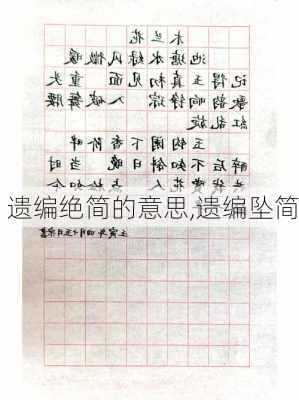 木兰花
池塘水绿风微暖
记得玉真初见面 重头
歌韵响铮琮 入破舞腰
红乱旋
玉钩阑下香阶畔
醉后不知斜日晚 当时
共我赏花人 点检如今
遗编绝简的意思,遗编坠简